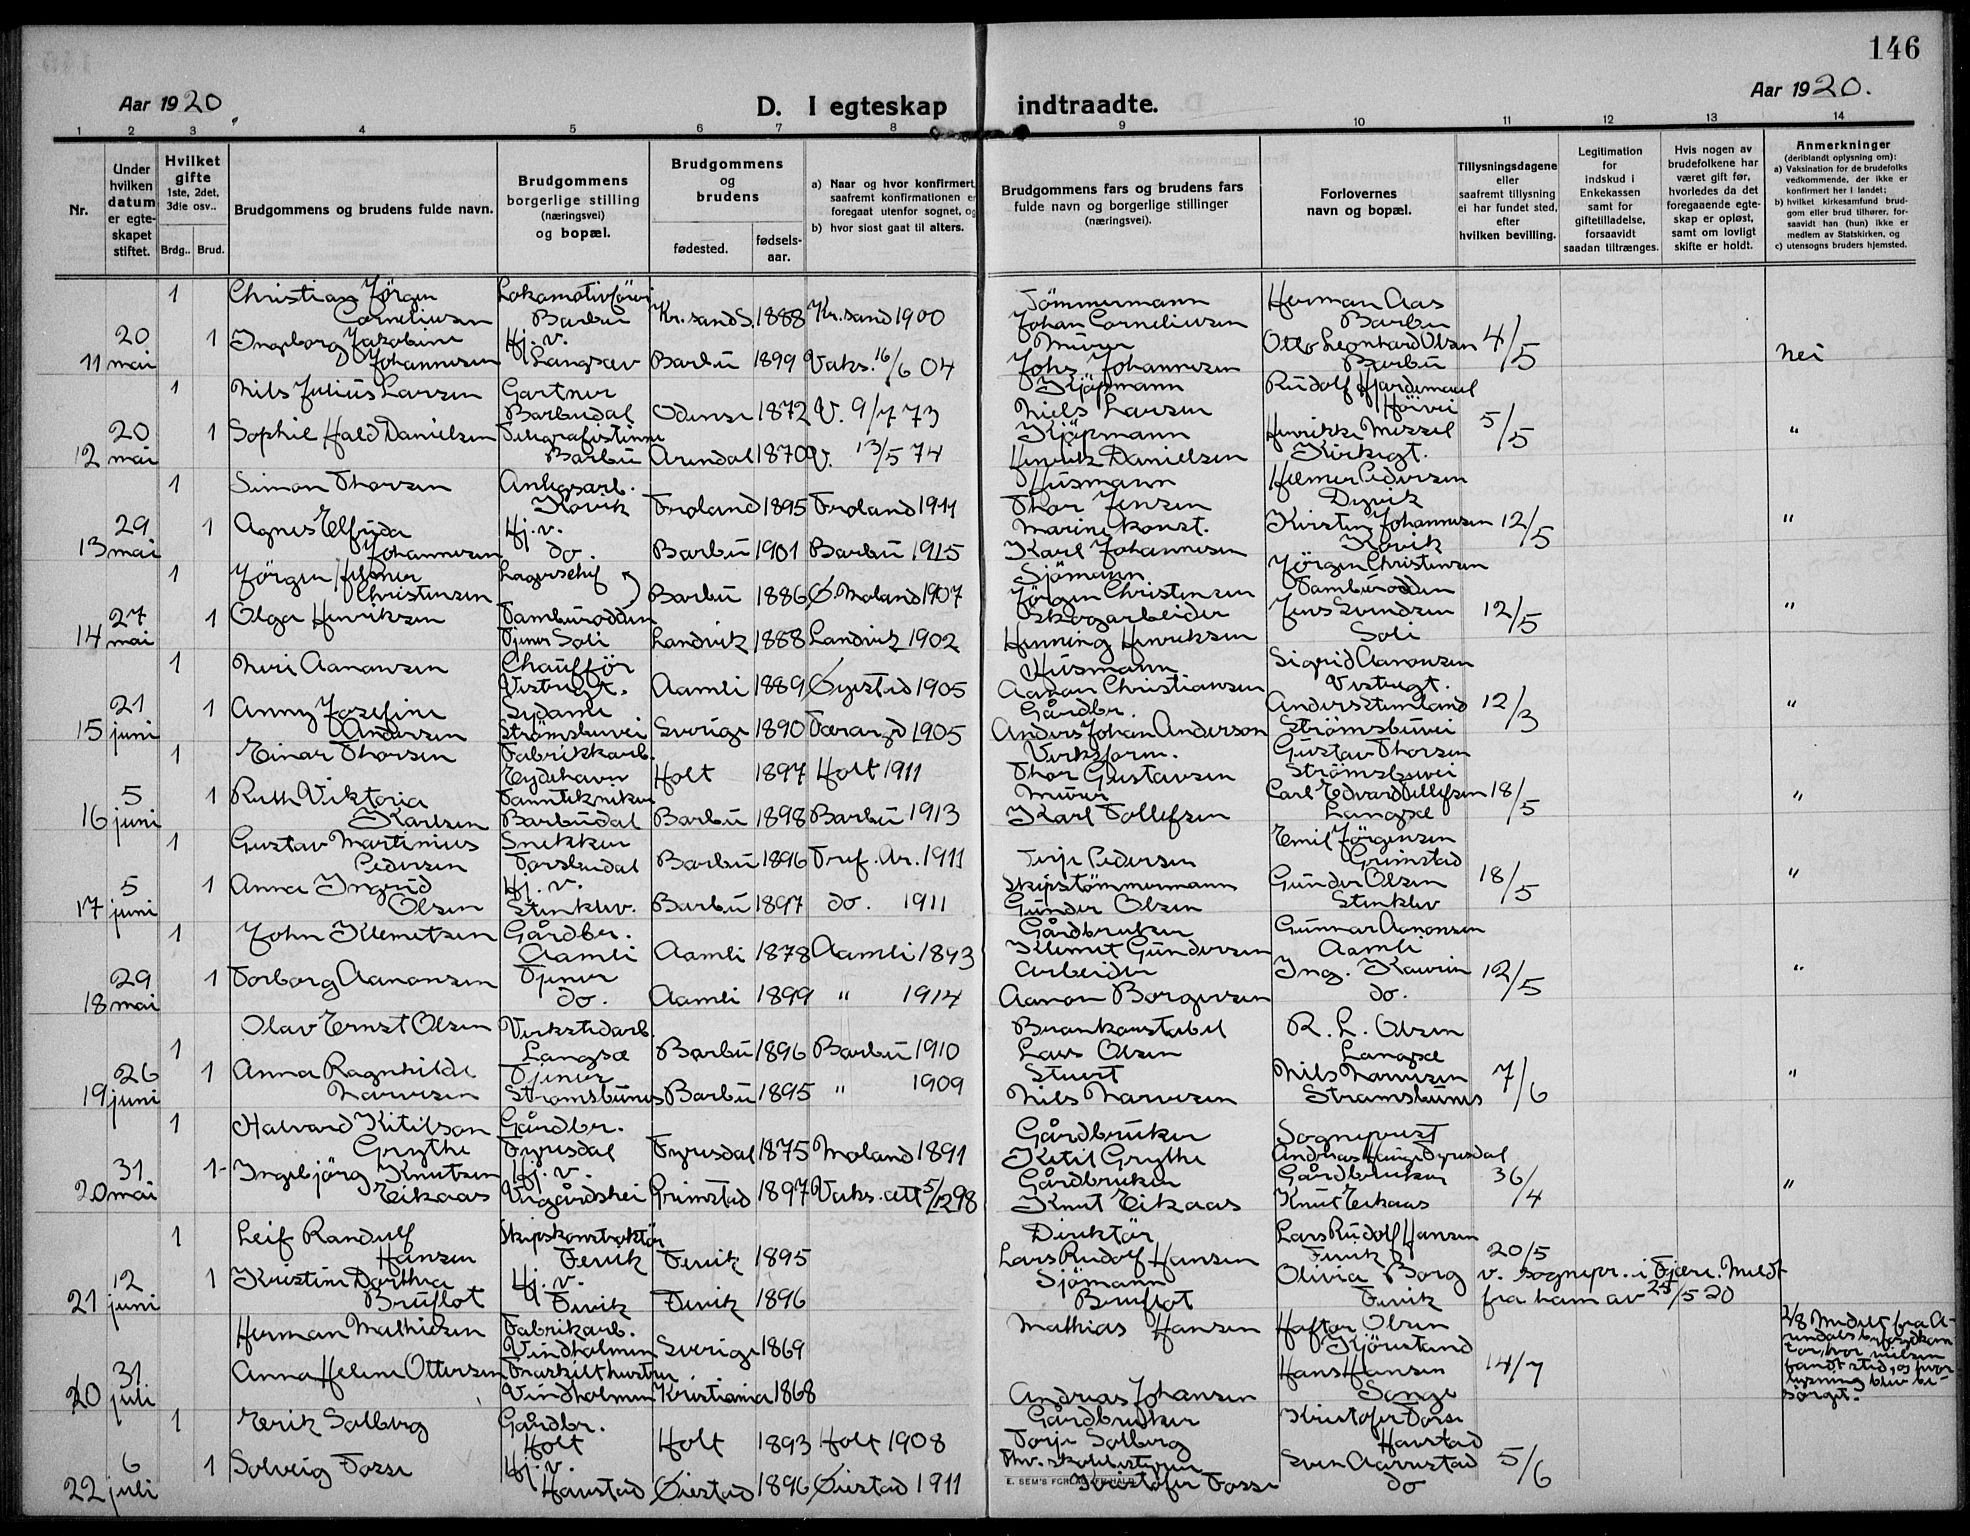 146
Aar 1920
D. I egteskap indtraadte.
Aar 1920.
1 2 3 4 5 6 7 8 9 10 11 12 13 14
Nr.
Under hvilken datum er egteskapet stiftet.
Hvilket gifte 1ste, 2det, 3die osv..
Brdg.. Brud.
Brudgommens og brudens fulde navn.
Brudgommens borgerlige stilling (næringsvei) og bopæl.
Brudgommens og brudens
fødested. fødselsaar.
a) Naar og hvor konfirmert, saafremt konfirmationen er foregaat utenfor sognet, og
b) hvor sidst gaat til alters.
Brudgommens fars og brudens fars fulde navn og borgerlige stillinger (næringsvei).
Forlovernes navn og bopæl.
Tillysningsdagene eller saafremt tillysning ei har fundet sted, efter hvilken bevilling.
Legitimation for indskud i Enkekassen samt for giftetilladelse, forsaavidt saadan tiltrænges.
Hvis nogen av brudefolkene har været gift før, hvorledes da det foregaaende egteskap er opløst, samt om lovligt skifte er holdt.
Anmerkninger
(deriblandt oplysning om):
a) Vaksination for de brudefolks vedkommende, der ikke er konfirmert her i landet;
b) hvilket kirkesamfund brudgom eller brud tilhører, forsaavidt han (hun) ikke er medlem av Statskirken, og
c) utensogns bruders hjemsted.
1 Christian Jørgen Corneliusen Barbu Kr.sand S. 1888 Kr.sand 1900 Tömmermann Johan Corneliusen Herman Aas Barbu
11 20 mai 1 Ingeborg Jakobine Johannesen Hj. v. Langsæv Barbu 1899 Vaks. 16/6 04 Murer Johs. Johannesen Otto Leonhard Olsen Barbu 4/5 Nei
1 Nils Julius Larsen Gartner Barbudal Odense 1872 V. 9/7 73 Kjöpmann Niels Larsen Rudolf Hjardemaal Höivei
12 20 mai 1 Sophie Hald Danielsen Telegrafistinne Barbu Arendal 1870 V. 13/5 74 Kjöpmann Henrik Danielsen Henrikke Messel Kirkegt. 5/5 "
1 Simon Thorsen Anlegsarb. Kovik Froland 1895 Froland 1911 Husmann Thor Jensen Helmer Pedersen Dyvik
13 29 mai 1 Agnes Elfrida Johannesen Hj. v. do. Barbu 1901 Barbu 1915 Marine konst. Karl Johannesen Kirsten Johannesen Kovik 12/5 "
1 Jørgen Helmer Christensen Lagerschef Barbu 1886 Ø. Moland 1907 Sjömann Jörgen Christensen Jörgen Christensen Tamburodden
14 27 mai 1 Olga Henriksen Tamburodden Tjener Soli Landvik 1888 Landvik 1902 Skogarbeider Henning Henriksen Jens Svendsen Soli 12/5 "
1 Neri Aanonsen Chauffør Vestregt. Aamli 1889 Øyestad 1905 Husmann Aanon Christiansen Sigrid Aanonsen Vestregt.
15 21 juni 1 Anny Josefine Andersen Sydame Strömsbuvei Sverige 1890 1905 Gårdbr. Anders Johan Anderson Strömsbuvei 12/3 "
1 Einar Thorsen Fabrikkarb. Eydehavn Holt 1897 Holt 1911 Verksform. Thor Gustavsen Gustav Thorsen Strömsbuvei
16 5 juni 1 Ruth Viktoria Karlsen Tanntekniker Barbudal Barbu 1898 Barbu 1913 Murer Karl Tollefsen Carl Edvard Tellefsen Langsæ 18/5 "
1 Gustav Martinius Pedersen Snekker Torsbudal Barbu 1896 Tref. Ar. 1911 Terje Pedersen Emil Jørgensen Grimstad
17 5 juni 1 Anna Ingrid Olsen Hj. v. Stenklev. Barbu 1897 do. 1911 Skipstömmermann Gunder Olsen Gunder Olsen Stenklev 18/5 "
1 John Klemetsen Gårdbr. Aamli Aamli 1878 Aamli 1893 Gårdbruker Klemet Gundersen Gunnar Aanonsen Aamli
18 29 mai 1 Torborg Aanonsen Tjener do. Aamli 1899 " 1914 Arbeider Aanon Borgersen Ing. Kavrin do. 12/5 "
1 Olav Ernst Olsen Verkstedarb. Langsæ Barbu 1896 Barbu 1910 Brankonstabel Lars Olsen R. L. Olsen Langsæ
19 26 juni 1 Anna Ragnhilde Narvesen Tjener Strømsbunes Barbu 1895 " 1909 Stuert Nils Narvesen Nils Narvesen Strømsbunes 7/6 "
1 Halvard Kitilson Grythe Gårdbr. Fyrisdal Fyrisdal 1875 Moland 1891 Gårdbruker Ketil Grythe Sogneprest Andreas Hauge Fyrisdal
20 31 mai 1 Ingebjörg Knutsen Eikaas Hj. v. Vegårdshei Grimstad 1897 Vaks. att 5/12 98 Gårdbruker Knut Eikaas Gårdbruker Knut Eikaas 36/4 "
1 Leif Randulf Hansen Skipskonstruktör Fevik Fevik 1895 Direktör Lars Rudolf Hansen Lars Rudolf Hansen Fevik 20/5
21 12 juni 1 Kristine Dorthea Bruflot Hj. v. Fevik Fevik 1896 Sjömann Bruflot Olivia Borg Fevik v. sognepr. i Fjære. Meldt fra ham av 25/5 20
Herman Mathiesen Fabrikarb. Vindholmen Sverige 1869 Mathias Hansen Haftor Olsen Kjörestand
20 31 juli Anna Helene Ottersen Fraskilt hustru Vindholmen Kristiania 1868 Andreas Johansen Hans Hansen Songe 14/7 2/8 Meddelt fra Arendals byfogdkontor, hvor vielsen fandt sted, og hvor lysning blev besörget.
1 Erik Solberg Gårdbr. Holt Holt 1893 Holt 1908 Gårdbruker Torje Solberg Kristofer Fosse Havstad
22 6 juli 1 Solveig Fosse Hj. v. Havstad Øiestad 1896 Øiestad 1911 Fhv. skolebestyrer Kristofer Fosse Sven Aavestad do 5/6
E. SEM'S FORLAG, FR.HALD